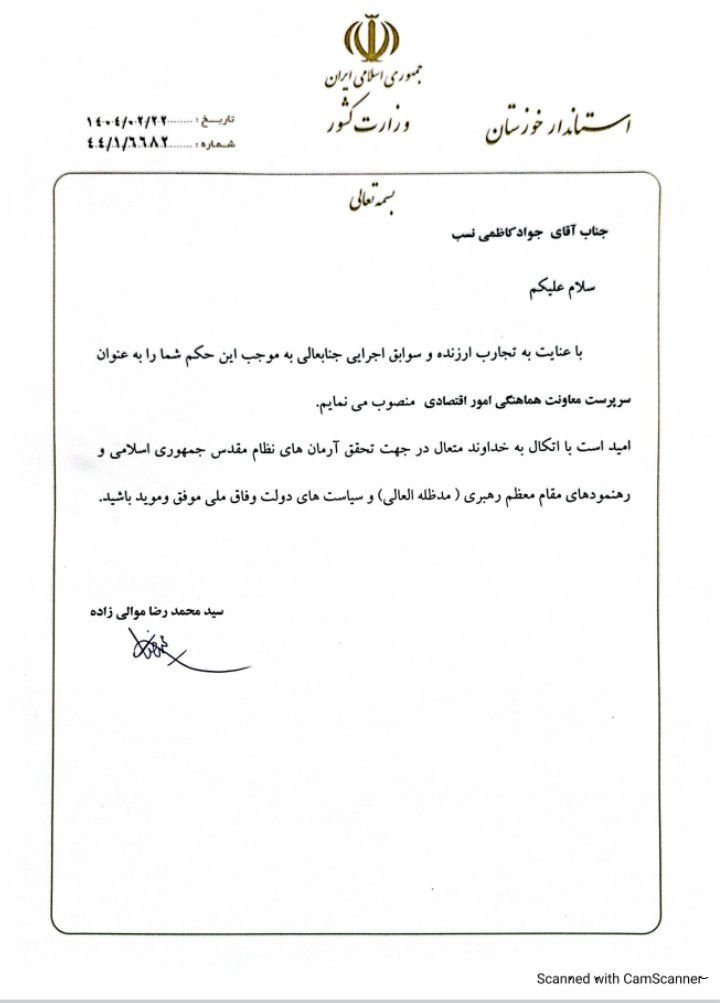 جمهوری اسلامی ایران
وزارت کشور
استاندار خوزستان
تاریخ : ........۱۴۰۴/۰۲/۲۲
شماره : .......۴۴/۱/۶۶۸۲
بسمه تعالی
جناب آقای جواد کاظمی نسب
سلام علیکم
با عنایت به تجارب ارزنده و سوابق اجرایی جنابعالی به موجب این حکم شما را به عنوان
سرپرست معاونت هماهنگی امور اقتصادی منصوب می نمایم.
امید است با اتکال به خداوند متعال در جهت تحقق آرمان های نظام مقدس جمهوری اسلامی و
رهنمودهای مقام معظم رهبری ( مدظله العالی) و سیاست های دولت وفاق ملی موفق وموید باشید.
سید محمد رضا موالی زاده
Scanned with CamScanner